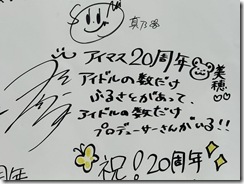 アイマス20周年
美穂
アイドルの数だけ
ふるさとがあって、
アイドルの数だけ
プロデューサーさんがいる!!
祝!20周年
周年